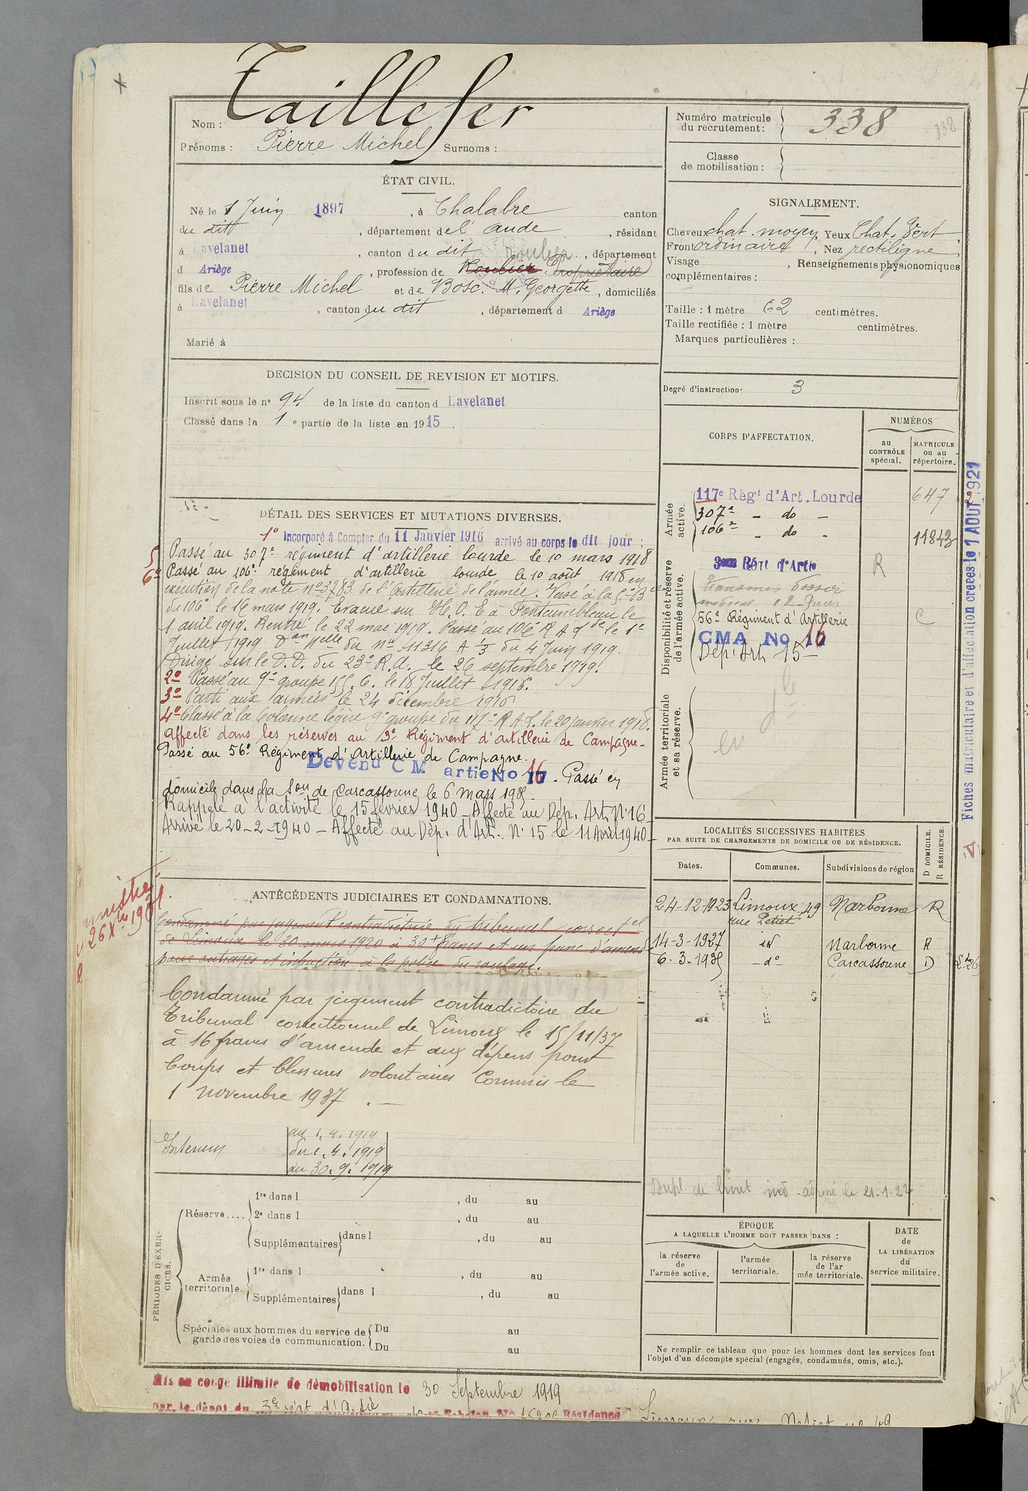 Taillefer
Nom :
Prénoms : Pierre Michel Surnoms :
Numéro matricule
du recrutement : 338
338
Classe
de mobilisation :
ÉTAT CIVIL.
Né le 1 Juin 1897, à Chalabre canton
du dit, département de l'Aude, résidant
à Lavelanet, canton du dit, département
d Ariège, profession de Propriétaire
fils de Pierre Michel et de Bosc. M. Georgette, domiciliés
à Lavelanet, canton du dit, département d Ariège
Marié à
SIGNALEMENT.
Cheveux chat. moyen Yeux Chat. Vert
Front ordinaire, Nez rectiligne
Visage , Renseignements physionomiques
complémentaires :
Taille : 1 mètre 62 centimètres.
Taille rectifiée : 1 mètre centimètres.
Marques particulières :
DÉCISION DU CONSEIL DE REVISION ET MOTIFS.
Inscrit sous le n° 94 de la liste du canton d Lavelanet
Classé dans la 1e partie de la liste en 1915.
Degré d'instruction : 3
CORPS D'AFFECTATION.
NUMÉROS
au
CONTRÔLE
spécial.
MATRICULE
ou au
répertoire.
Armée
active.
117e Règt d'Art. Lourde 647
307e - do -
106e - do - 11843
Disponibilité et réserve
de l'armée active.
3em Régt d'Artie R
56e Régiment d'Artillerie C
CMA No 16
Dép. Art. 15
Armée territoriale
et sa réserve.
Fiches matriculaire et d'affectation créées le 1 AOUT 1921
DÉTAIL DES SERVICES ET MUTATIONS DIVERSES.
1° Incorporé à Compter du 11 Janvier 1916 arrivé au corps le dit jour ;
5° Passé au 307e régiment d'artillerie lourde le 10 mars 1918
6° Passé au 106e régiment d'artillerie lourde le 10 août 1918 en
exécution de la note n° 3783 de l'Artillerie de l'armée. Passé à la
du 106e le 16 mars 1919. Evacué sur H.O.E à Fontainebleau le
1 avril 1919. Rentré le 22 mai 1919. Passé au 106 R A L le 1er
Juillet 1919 du N° 11316 A 1/3 du 4 Juin 1919.
Dirigé sur le D.D. du 23e R.A. le 26 septembre 1919.
2° Passé au 9e groupe 155 C. le 18 Juillet 1916.
3° Parti aux armées le 24 décembre 1916
4° Classé à la Colonne légère 9e groupe du 117e R A L le 20 janvier 1918.
Affecté dans les réserves au 3e Régiment d'Artillerie de Campagne.
Passé au 56e Régiment d'Artillerie de Campagne.
Devenu C M artie No 16. Passé en
domicile dans la Son de Carcassonne le 6 Mars 1935
Rappelé à l'activité le 15 février 1940 - Affecté au Dép. Art. N° 16
Arrivé le 20-2-1940 - Affecté au Dép. d'Art. N° 15 le 11 Avril 1940
ANTÉCÉDENTS JUDICIAIRES ET CONDAMNATIONS.
Condamné par jugement contradictoire du tribunal correctel
de Limoux le 30 mars 1920 à 30 francs et un franc d'amende
pour outrages et infraction à la police du roulage.
Condamné par jugement contradictoire du
Tribunal correctionnel de Limoux le 15/11/37
à 16 francs d'amende et aux dépens pour
Coups et blessures volontaires Commis le
1 novembre 1937.
Intérieur
au 1.4.1919
du 1.4.1919
au 30.9.1919
LOCALITÉS SUCCESSIVES HABITÉES
PAR SUITE DE CHANGEMENTS DE DOMICILE OU DE RÉSIDENCE.
Dates. Communes. Subdivisions de région D DOMICILE. R RÉSIDENCE.
24-12-1923 Limoux 49 Narbonne R
rue Petiet
14-3-1927 id Narbonne R
6-3-1935 - do Carcassonne D
PÉRIODES D'EXERCICES.
Réserve....
1re dans l , du au
2e dans l , du au
Supplémentaires dans l , du au
Armée
territoriale.
1re dans l , du au
Supplémentaires dans l , du au
Spéciales aux hommes du service de
garde des voies de communication.
Du au
Du au
ÉPOQUE
A LAQUELLE L'HOMME DOIT PASSER DANS :
la réserve
de
l'armée active.
l'armée
territoriale.
la réserve
de l'armée territoriale.
DATE
de
LA LIBÉRATION
du
service militaire.
Ne remplir ce tableau que pour les hommes dont les services font
l'objet d'un décompte spécial (engagés, condamnés, omis, etc.).
Mis en congé illimité de démobilisation le 30 Septembre 1919
par le dépôt du 3e régt d'Artie Résidence Limoux, rue Petiet no 49